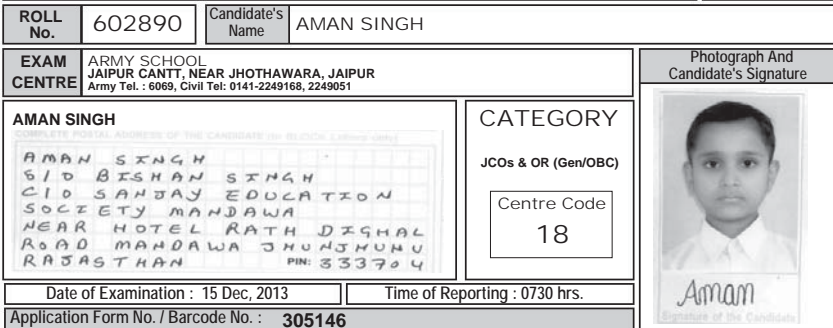 ROLL No. 602890 Candidate's Name AMAN SINGH
EXAM CENTRE
ARMY SCHOOL
JAIPUR CANTT, NEAR JHOTHAWARA, JAIPUR
Army Tel. : 6069, Civil Tel: 0141-2249168, 2249051
Photograph And
Candidate's Signature
AMAN SINGH
COMPLETE POSTAL ADDRESS OF THE CANDIDATE (in BLOCK Letters only)
AMAN SINGH
S/O BISHAN SINGH
C/O SANJAY EDUCATION
SOCIETY MANDAWA
NEAR HOTEL RATH DIGHAL
ROAD MANDAWA JHUNJHUNU
RAJASTHAN PIN: 333704
CATEGORY
JCOs & OR (Gen/OBC)
Centre Code
18
Aman
Signature of the Candidate
Date of Examination : 15 Dec, 2013 Time of Reporting : 0730 hrs.
Application Form No. / Barcode No. : 305146